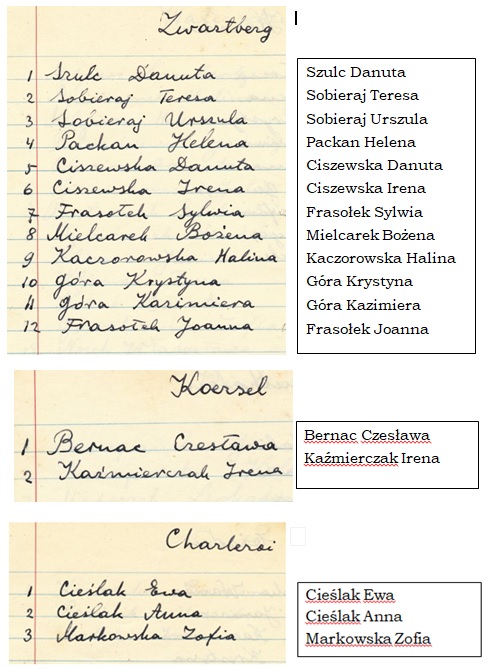 Zwartberg
1 Szulc Danuta
2 Sobieraj Teresa
3 Sobieraj Urszula
4 Packan Helena
5 Ciszewska Danuta
6 Ciszewska Irena
7 Frasołek Sylwia
8 Mielcarek Bożena
9 Kaczorowska Halina
10 Góra Krystyna
11 Góra Kazimiera
12 Frasołek Joanna
Szulc Danuta
Sobieraj Teresa
Sobieraj Urszula
Packan Helena
Ciszewska Danuta
Ciszewska Irena
Frasołek Sylwia
Mielcarek Bożena
Kaczorowska Halina
Góra Krystyna
Góra Kazimiera
Frasołek Joanna
Koersel
1 Bernac Czesława
2 Kaźmierczak Irena
Bernac Czesława
Kaźmierczak Irena
Charleroi
1 Cieślak Ewa
2 Cieślak Anna
3 Markowska Zofia
Cieślak Ewa
Cieślak Anna
Markowska Zofia